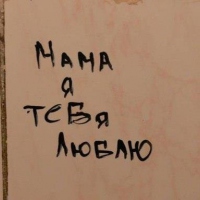 МАМА
Я
ТЕБЯ
ЛЮБЛЮ